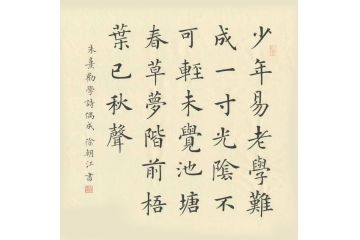 少年易老學難
成一寸光陰不
可輕未覺池塘
春草夢階前梧
葉已秋聲
朱熹勸學詩偶成 徐朝江書